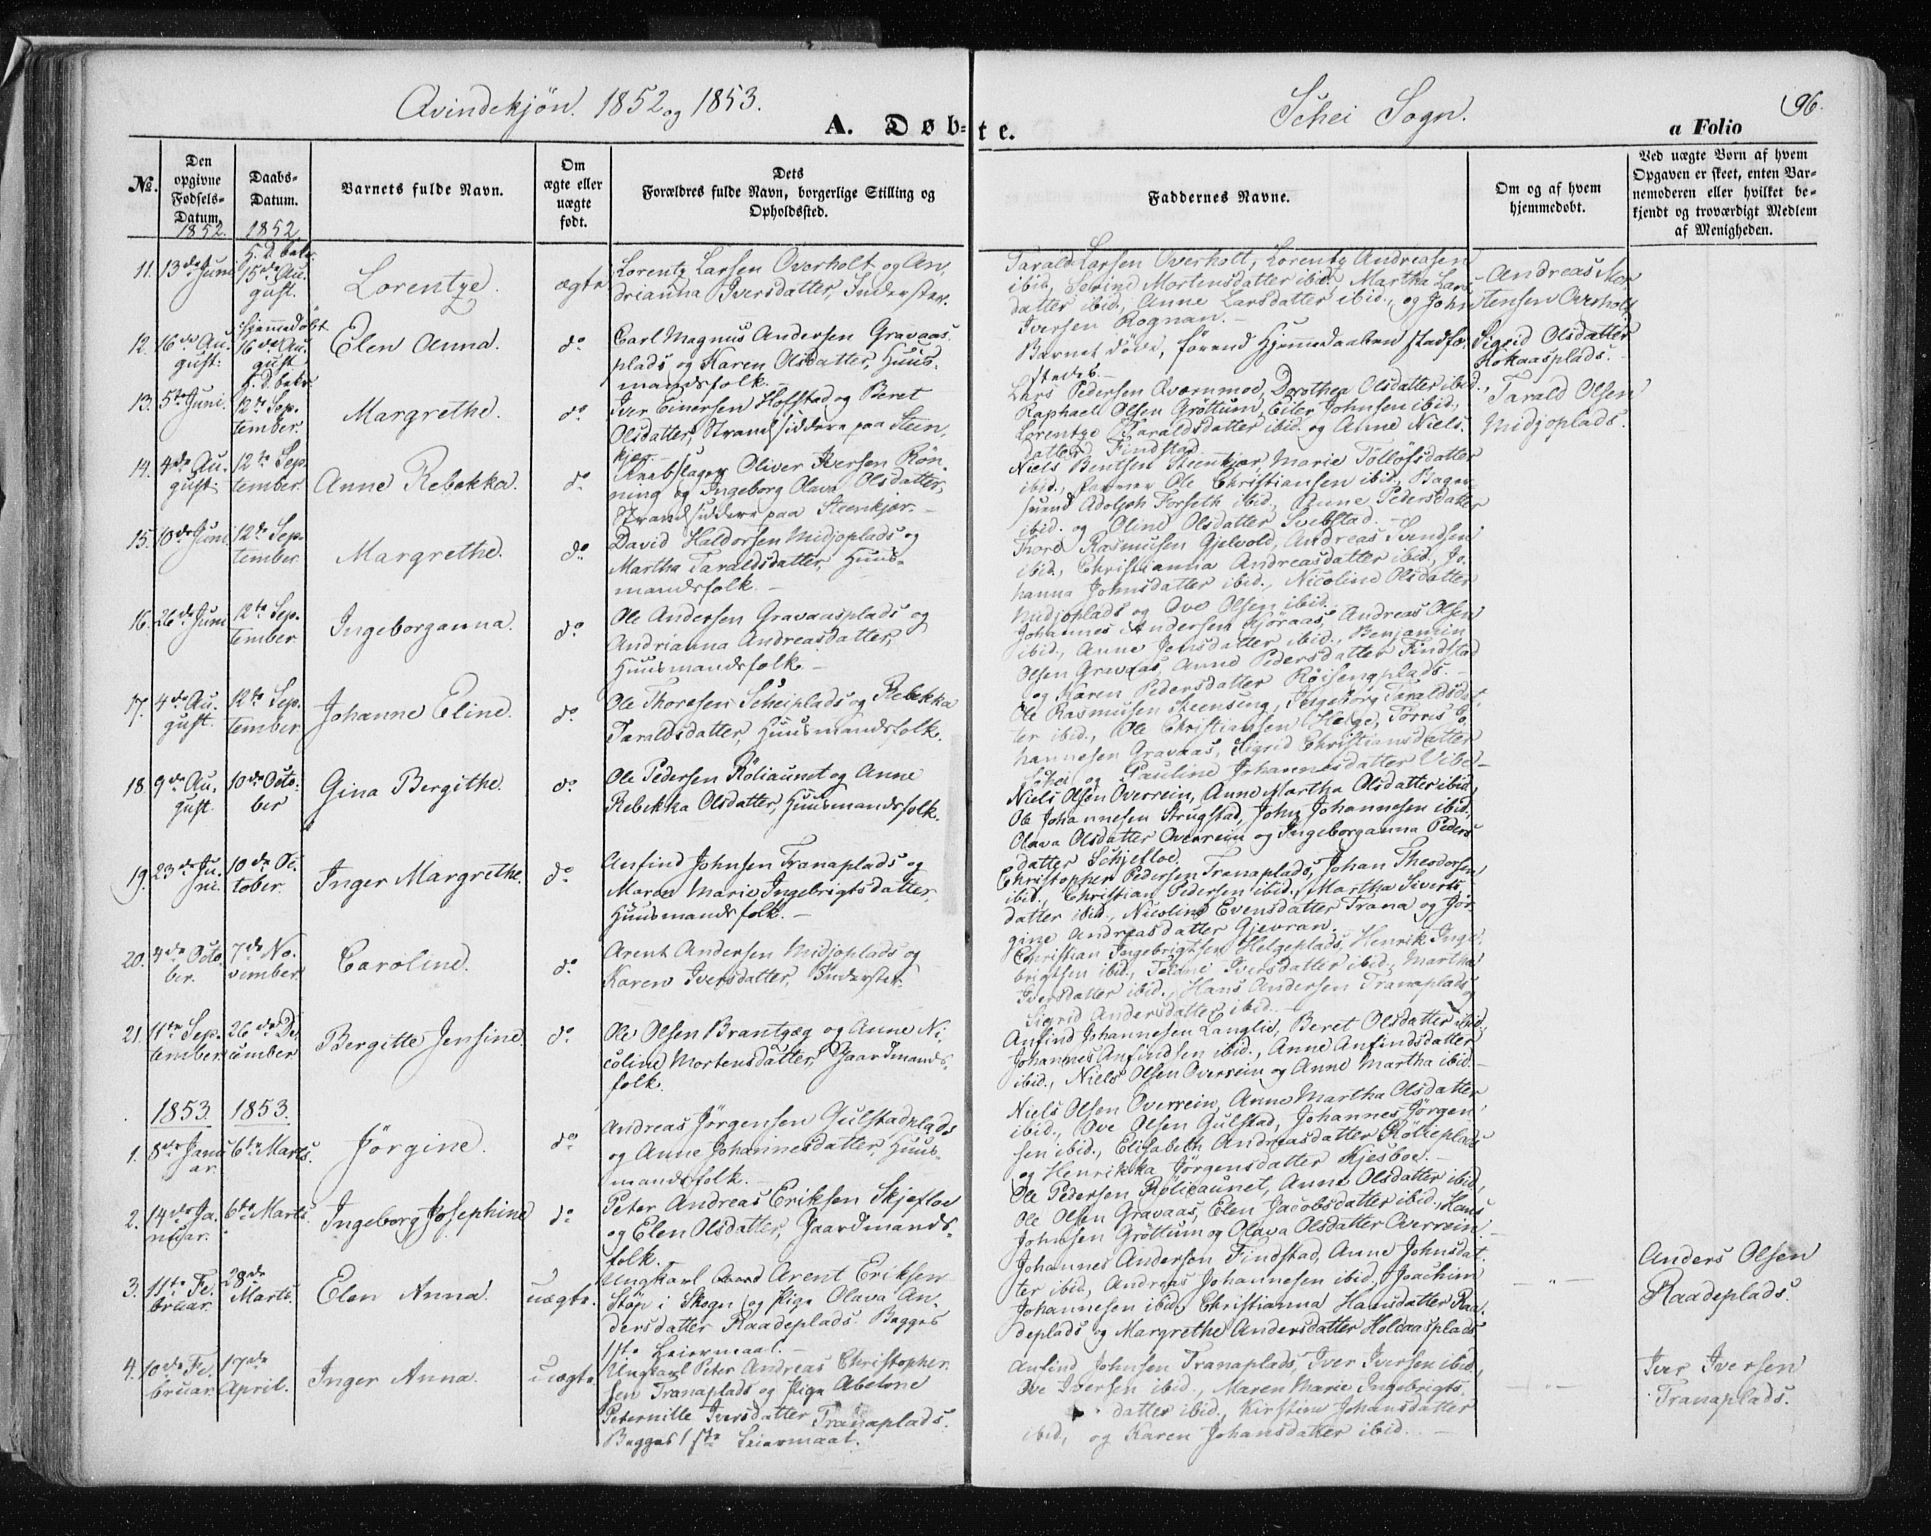 Qvindekjøn. 1852 og 1853.
Schei Sogn.
96.
A. Døbte.
a Folio
№.
Den opgivne Fødsels-Datum.
Daabs-Datum.
Barnets fulde Navn.
Om ægte eller uægte født.
Dets Forældres fulde Navn, borgerlige Stilling og Opholdssted.
Faddernes Navne.
Om og af hvem hjemmedøbt.
Ved uægte Børn af hvem Opgaven er skeet, enten Barnemoderen eller hvilket bekjendt og troværdigt Medlem af Menigheden.
1852. 1852.
11. 13de Juni
H. d. bekr. 15de August.
Lorentze.
ægte
Lorentz Larsen Overholt og An-
drianna Iversdatter, Inderster.
Tarald Larsen Overholt, Lorentz Andreasen
ibid, Serine Mortensdatter ibid, Martha Lars
datter ibid, Anne Larsdatter ibid., og John
Iversen Rognan.
Andreas Mor
tensen Overholt
12. 16de August.
Hjemmedøbt 16de August
Elen Anna.
do
Carl Magnus Andersen Gravaas
plads og Karen Olsdatter, Huus-
mandsfolk.
Barnet døde, førend Hjemmedaaben stadfæ-
stedes.
Sigrid Olsdatter
Hokaasplads.
13. 5te Juni.
H. d. bekr. 12te September.
Margrethe.
do
Iver Einersen Hofstad og Beret
Olsdatter, Strandsiddere paa Steen-
kjær.
Lars Pedersen Qvernmoe, Dorothea Olsdatter ibid.,
Raphael Olsen Grøttum, Eiler Johnsen ibid.,
Lorentze Taraldsdatter ibid og Anne Niels-
datter Findstad
Tarald Olsen
Midjoplads.
14. 4de August.
12te September
Anne Rebekka.
do
Rebslager Oliver Iversen Røn-
ning og Ingeborg Olava Olsdatter,
Strandsiddere paa Steenkjær.
Niels Bentsen Steenkjær, Marie Tølløfsdatter
ibid., Farver Ole Christiansen ibid., Bager-
svend Adolph Forseth ibid., Anne Pedersdatter
ibid. og Oline Olsdatter Svebstad.
15. 10de Juni
12te September
Margrethe.
do
David Haldorsen Midjoplads og
Martha Taraldsdatter, Huus-
mandsfolk.
Thore Rasmusen Gjelvold, Andreas Svendsen
ibid., Christianna Andreasdatter ibid., Jo-
hanna Johnsdatter ibid., Nicoline Olsdatter
Midjoplads og Ove Olsen ibid.
16. 26de Juni
12te September
Ingeborganna.
do
Ole Andersen Gravaasplads og
Andrianna Andreasdatter,
Huusmandsfolk.
Johannes Andersen Kjøraas, Andreas Olsen
ibid., Anne Jonsdatter ibid., Benjamin
Olsen Gravaas, Anne Pedersdatter Findstad
og Karen Pedersdatter Røisengplads.
17. 4de August.
12te September
Johanne Eline.
do
Ole Thoresen Scheiplads og Rebekka
Taraldsdatter, Huusmandsfolk.
Ole Rasmusen Steenseng, Ingeborg Taraldsdat-
ter ibid., Ole Christiansen Helge, Torris Jo-
hannesen Gravaas, Sigrid Christiansdatter
Schei og Pauline Johannesdatter Vibe
18. 9de August.
10de October
Gina Bergithe.
do
Ole Pedersen Røliaunet og Anne
Rebekka Olsdatter, Huusmandsfolk.
Niels Olsen Overrein, Anne Martha Olsdatter ibid.,
Ole Johannesen Strugstad, John Johannesen ibid,
Olava Olsdatter Overrein og Ingeborganna Peders
datter Schjefloe.
19. 23de Juni.
10de October.
Inger Margrethe.
do
Anfind Johnsen Tranaplads og
Maren Marie Ingebrigtsdatter,
Huusmandsfolk.
Christopher Pedersen Tranaplads, Johan Theodorsen
ibid, Christian Pedersen ibid., Martha Siverts-
datter ibid., Nicoline Evensdatter Trana og Jør-
gine Andreasdatter Gjevran.
20. 4de October.
7de November
Caroline.
do
Arent Andersen Midjoplads og
Karen Iversdatter, Inderster.
Christian Ingebrigtsen Helgeplads, Henrik Inge-
brigtsen ibid., Iversdatter ibid., Martha
Iversdatter ibid., Hans Andersen Tranaplads og
Sigrid Andersdatter ibid.
21. 11te September
26de December
Bergitte Jensine.
do
Ole Olsen Brantzæg og Anne Ni-
coline Mortensdatter, Gaardmands-
folk.
Anfind Johannesen Langlie, Beret Olsdatter ibid.,
Johannes Anfindsen ibid., Anne Anfindsdatter
ibid., Niels Olsen Overrein og Anne Martha ibid.
1853. 1853.
1. 8de Januar.
6te Marts.
Jørgine.
do
Andreas Jørgensen Gulstadplads
og Anne Johannesdatter, Huus-
mandsfolk.
Niels Olsen Overrein, Anne Martha Olsdatter
ibid., Ove Olsen Gulstad, Johannes Jørgen-
sen ibid., Elisabeth Andreasdatter Røliieplads
og Henrikka Jørgensdatter Kjesboe.
2. 14de Januar.
6te Marts.
Ingeborg Josephine
do
Peter Andreas Eriksen Skjefloe
og Elen Olsdatter, Gaardmands-
folk.
Ole Pedersen Røliaunet, Anne Olsdatter ibid,
Ole Olsen Gravaas, Elen Jacobsdatter ibid., Hans
Johnsen Grøttum og Olava Olsdatter Overrein.
3. 11te Februar.
28de Marts.
Elen Anna.
uægte.
Ungkarl Arent Eriksen
Støp i Skogn og Pige Olava An-
dersdatter Raadeplads. Begges
1ste Leiermaal.
Johannes Andersen Findstad, Anne Johnsdat-
ter ibid, Andreas Johannesen ibid, Joachim
Johannesen ibid, Christianna Hansdatter Raa-
deplads og Margrethe Andersdatter Holdaasplads
— „ —
Anders Olsen
Raadeplads.
4. 10de Februar
17de April.
Inger Anna.
uægte
Ungkarl Peter Andreas Christopher-
sen Tranaplads og Pige Abelone
Peternille Iversdatter Tranaplads.
Begges 1ste Leiermaal.
Anfind Johnsen Tranaplads, Iver Iversen ibid,
Ove Iversen ibid., Maren Marie Ingebrigts-
datter ibid, Kirstine Johansdatter
ibid, og Karen Johansdatter ibid.
— „ —
Iver Iversen
Tranaplads.